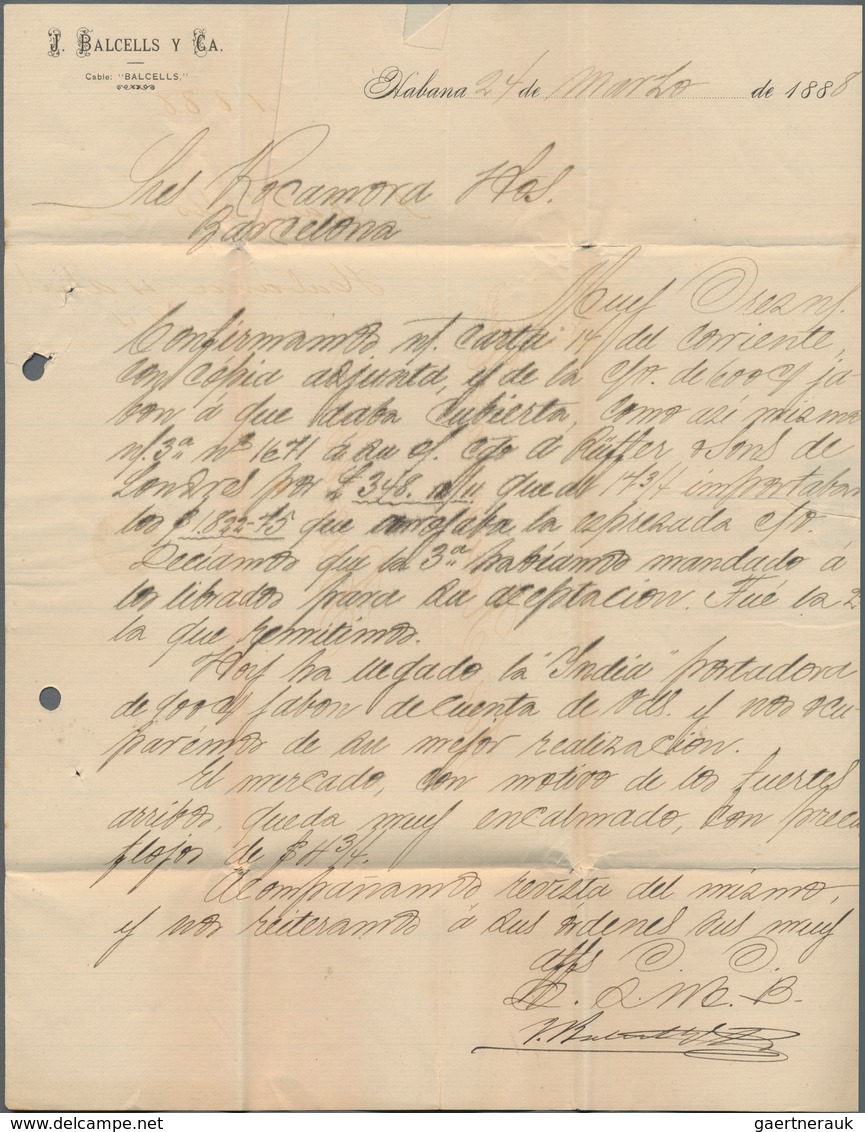 J. BALCELLS Y CA.
Cable: "BALCELLS."
Habana 24 de Marzo de 1888
Sres Rocamora Hos.
Barcelona
Muy Sres ns.
Confirmamos n/. carta 14 del corriente,
con cópia adjunta, y de la c/v. de 600 c/ ja-
bon á que daba cubierta, como así mismo
n/. 3ª nº 1671 á su o/. cgo á Rüffer & Sons de
Londres por £ 348. 11 que al 14 3/4 importaban
los $ 1.822-75 que arrojaba la espresada c/v.
Deciamos que la 3ª habiamos mandado á
los librados para su aceptacion. Fué la 2
la que remitimos.
Hoy ha llegado la "India" portadora
de 900 c/ jabon de cuenta de Vds. y nos ocu-
parémos de su mejor realizacion.
El mercado, con motivo de los fuertes
arribos, queda muy encalmado, con preci
flojos de $ 4 3/4.
Acompañamos revista del mismo,
y nos reiteramos á sus órdenes sus muy
affs S. S.
Q. S. M. B.
J. Balcells y Ca
delcampe.net
gaertnerauk